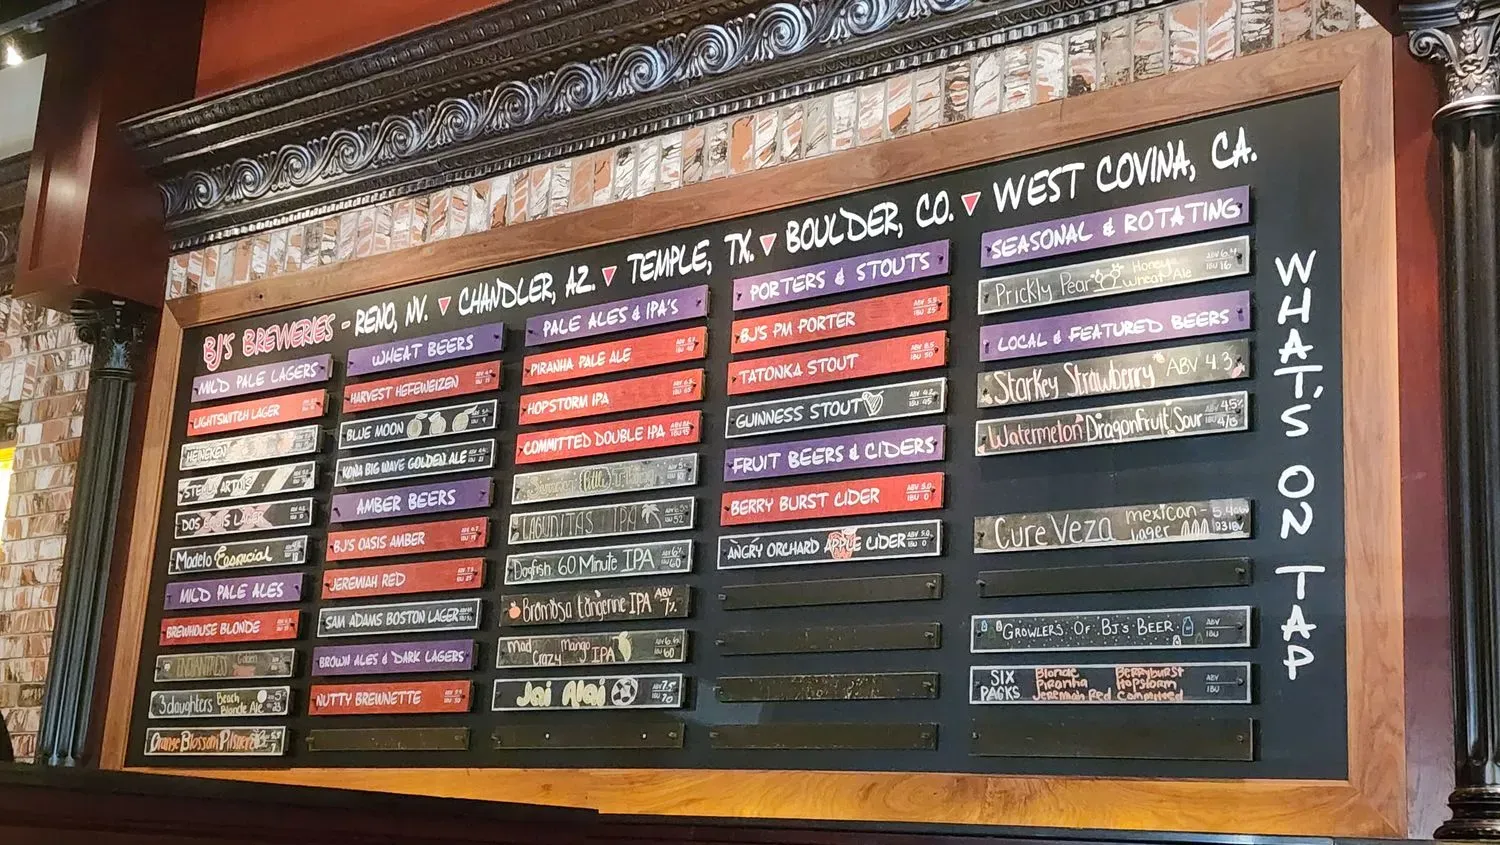 BJ'S BREWERIES - RENO, NV. ▼ CHANDLER, AZ. ▼ TEMPLE, TX. ▼ BOULDER, CO. ▼ WEST COVINA, CA.
MILD PALE LAGERS
LIGHTSWITCH LAGER
HEINEKEN
STELLA ARTOIS
DOS EQUIS LAGER
Modelo Especial
MILD PALE ALES
BREWHOUSE BLONDE
3 daughters Beach Blonde Ale
Orange Blossom Pilsner
WHEAT BEERS
HARVEST HEFEWEIZEN
BLUE MOON
KONA BIG WAVE GOLDEN ALE
AMBER BEERS
BJ'S OASIS AMBER
JEREMIAH RED
SAM ADAMS BOSTON LAGER
BROWN ALES & DARK LAGERS
NUTTY BREWNETTE
PALE ALES & IPA'S
PIRANHA PALE ALE
HOPSTORM IPA
COMMITTED DOUBLE IPA
LAGUNITAS IPA
Dogfish 60 Minute IPA
tangerine IPA ABV 7%
mad crazy mango IPA
Jai Alai
PORTERS & STOUTS
BJ'S PM PORTER
TATONKA STOUT
GUINNESS STOUT
FRUIT BEERS & CIDERS
BERRY BURST CIDER
ANGRY ORCHARD APPLE CIDER
SEASONAL & ROTATING
Prickly Pear Honey Wheat Ale
LOCAL & FEATURED BEERS
Starkey Strawberry ABV 4.3
Watermelon Dragonfruit Sour
Cure Veza mexican lager
GROWLERS OF BJ'S BEER
SIX PACKS
Blonde Berryburst
Piranha Hopstorm
Jeremiah Red Committed
WHAT'S ON TAP